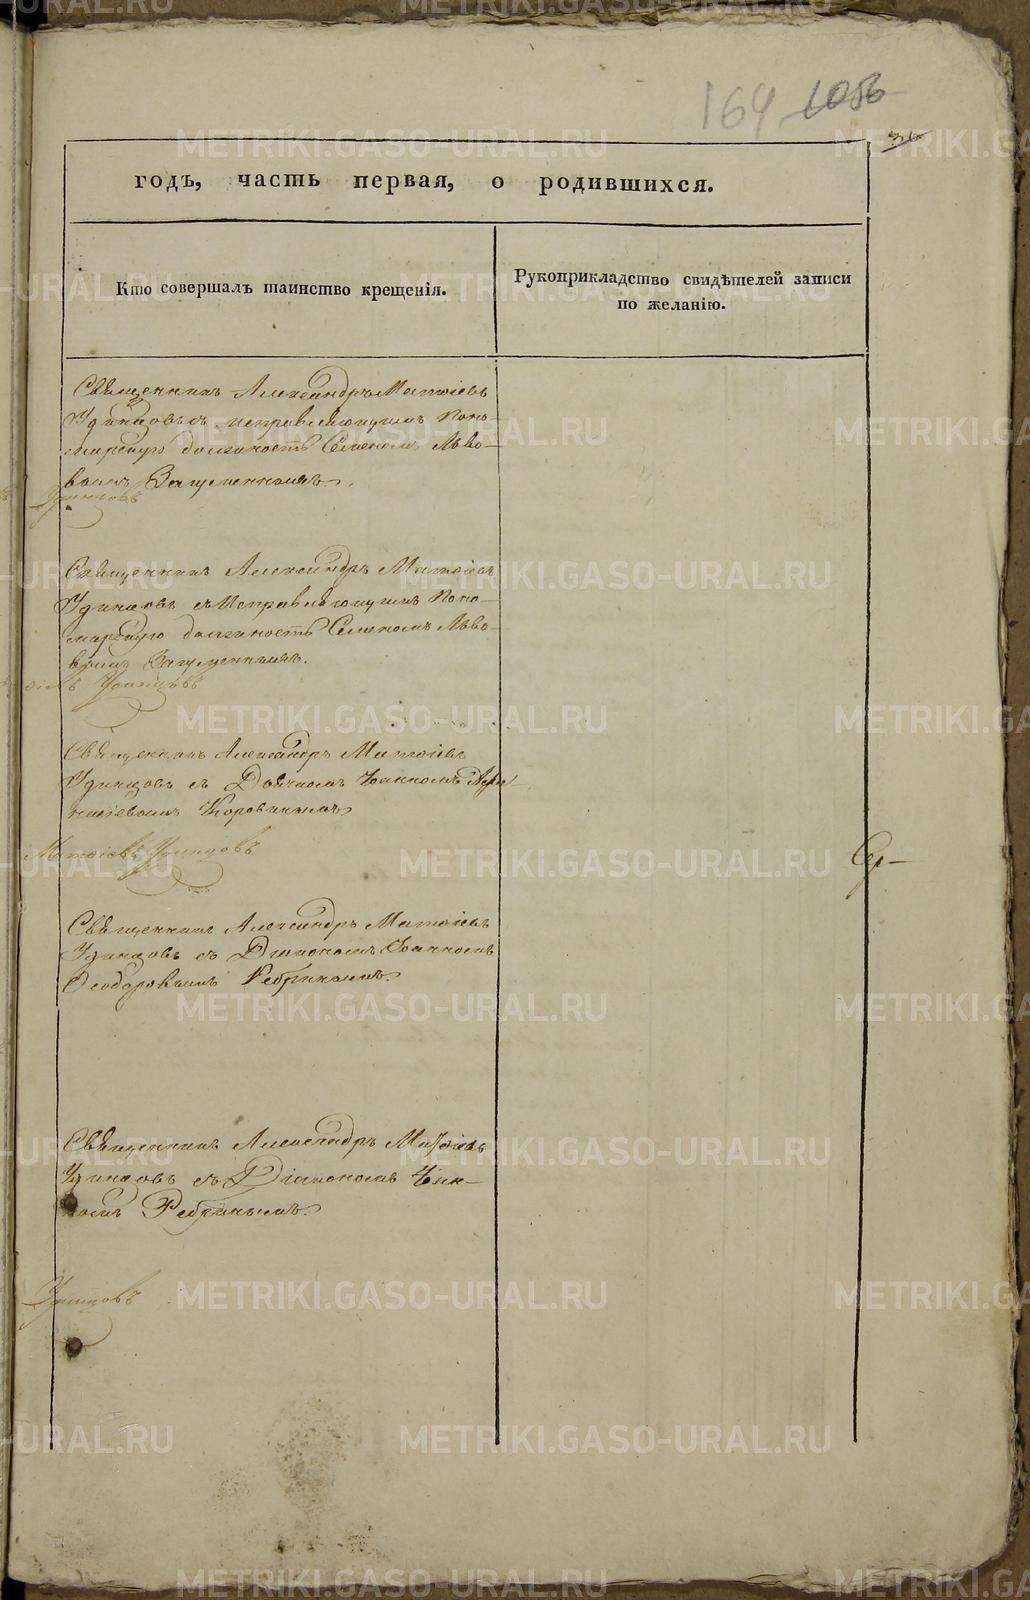 164 1056
36
годъ, часть первая, о родившихся.
Кто совершалъ таинство крещенія.
Рукоприкладство свидѣтелей записи
по желанію.
Священникъ Александръ Матѳіевъ
Удинцовъ съ исправляющимъ поно-
марскую должность Семеномъ Льво-
вымъ Загуменнымъ.
Удинцовъ
Священникъ Александръ Матѳіевъ
Удинцовъ съ исправляющимъ поно-
марскую должность Семеномъ Льво-
вымъ Загуменнымъ.
Удинцовъ
Священникъ Александръ Матѳіевъ
Удинцовъ съ Дьячкомъ Іоанномъ
Коровинымъ
Матѳіевъ Удинцовъ
Священникъ Александръ Матѳіевъ
Удинцовъ съ Діакономъ Іоанномъ
Ѳеодоровымъ Ребринымъ.
Священникъ Александръ Матѳіевъ
Удинцовъ съ Діакономъ Іоан-
номъ Ребринымъ.
Удинцовъ
METRIKI.GASO-URAL.RU